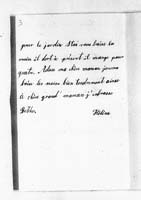 3
pour le garder Stan vous baise la
main il dort à présent il mange pour
quatre. Adieu ma chère maman je vous
baise les mains bien tendrement ainsi
à chère grand' maman j'embrasse
Hélène